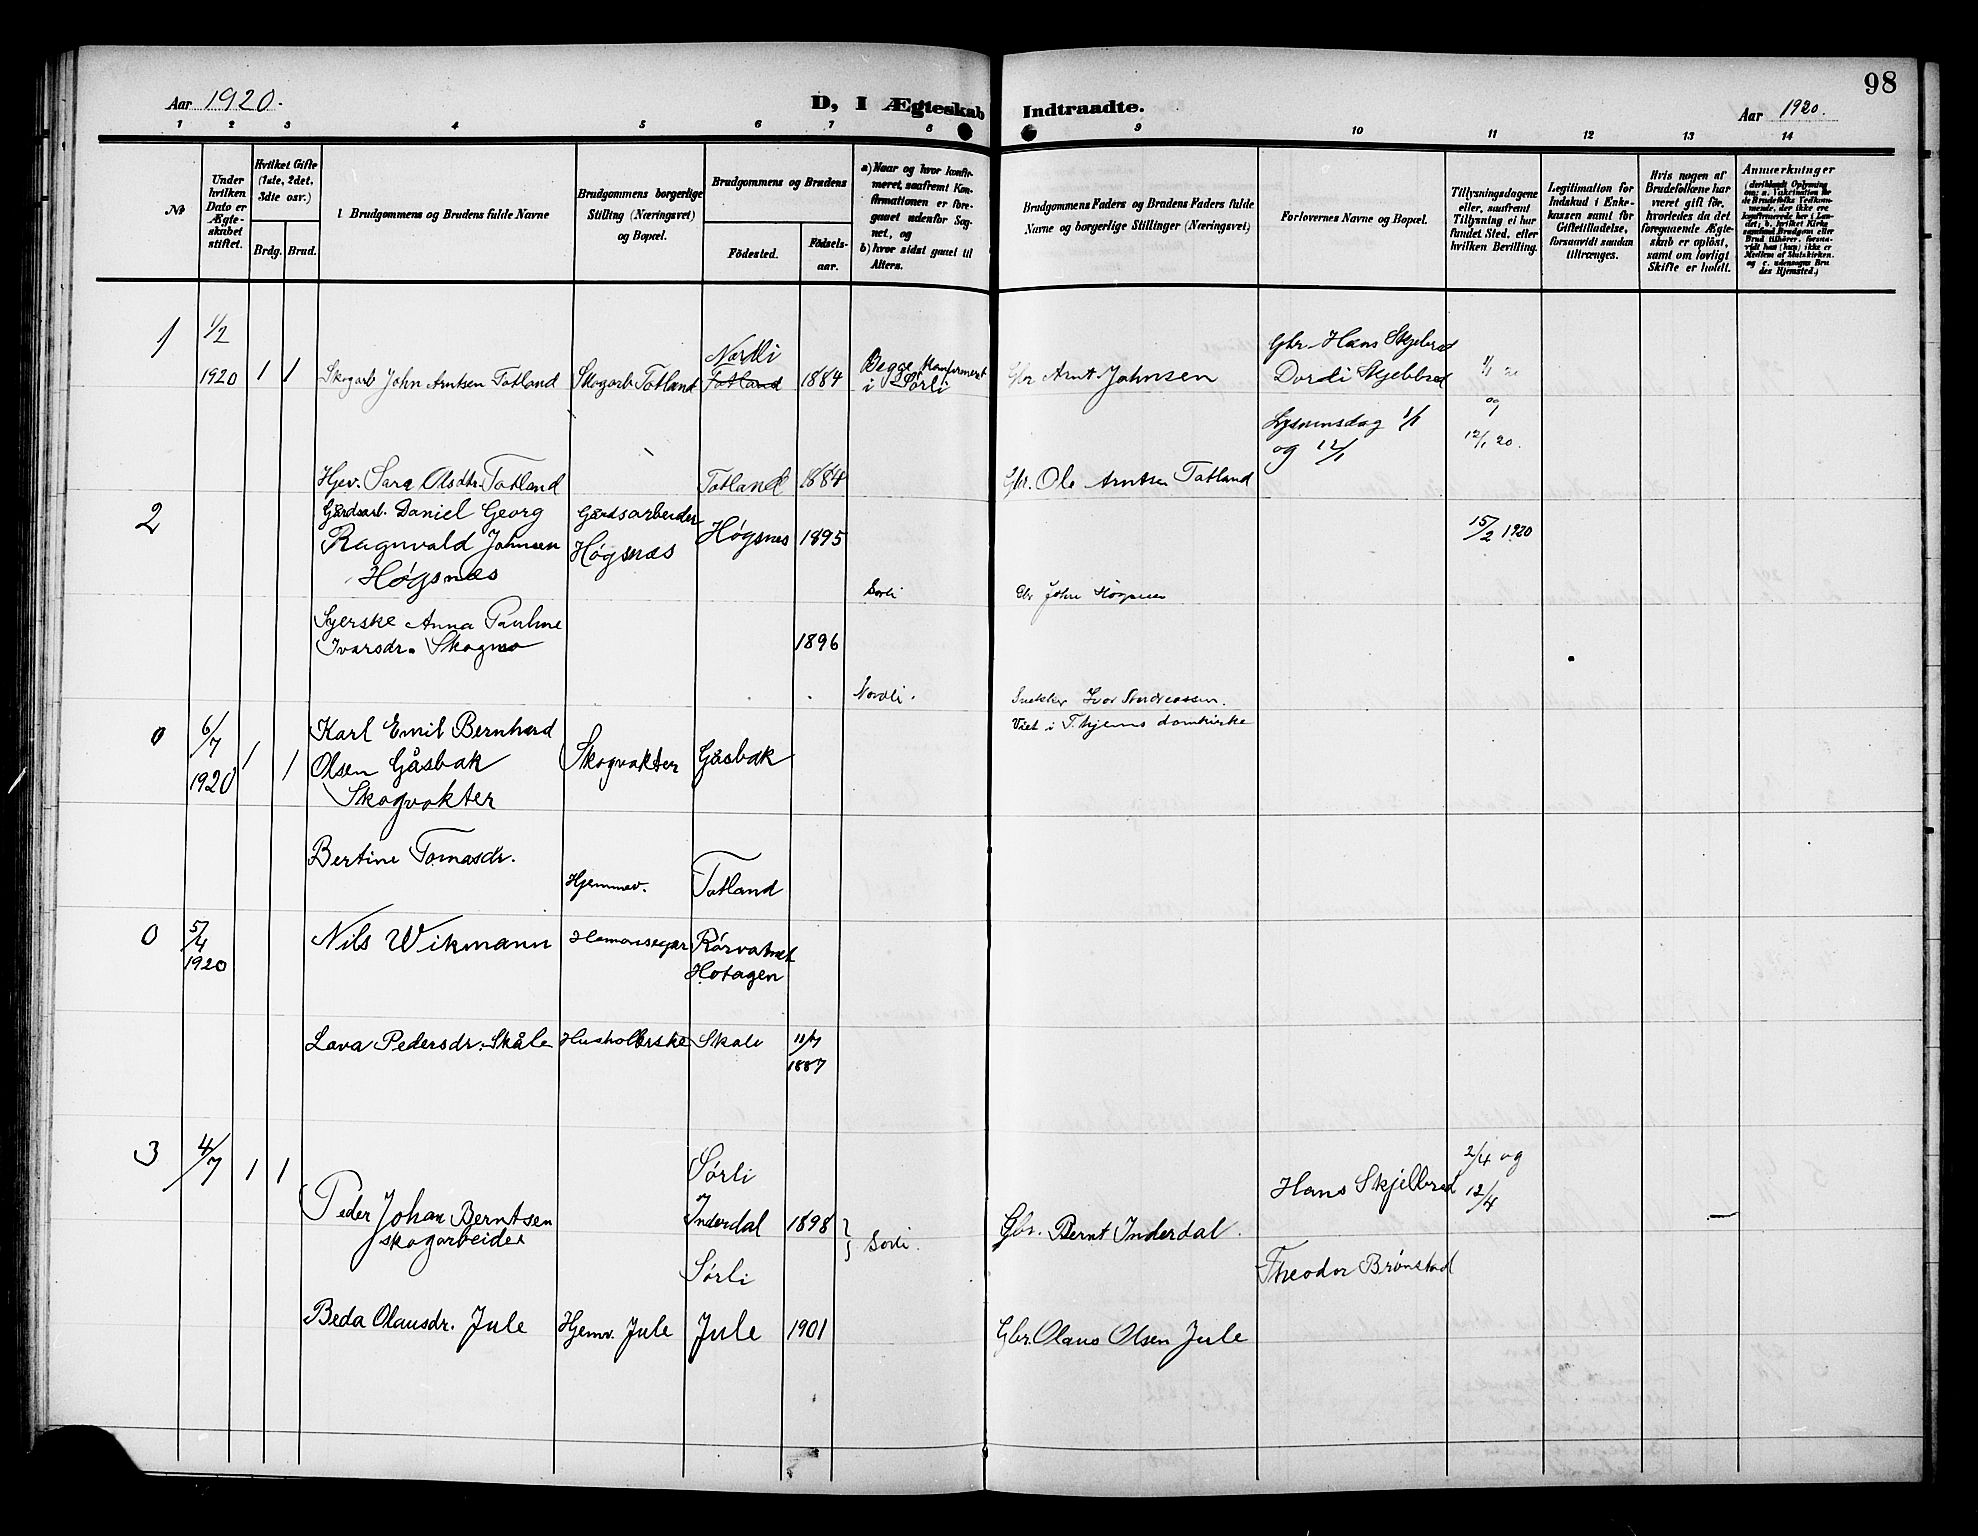 98
Aar 1920.
D, I Ægteskab Indtraadte.
Aar 1920.
1 2 3 4 5 6 7 8 9 10 11 12 13 14
№
Under hvilken Dato er Ægteskabet stiftet.
Hvilket Gifte (1ste, 2det, 3die osv.)
Brdg. Brud.
Brudgommens og Brudens fulde Navne
Brudgommens borgerlige Stilling (Næringsvei) og Bopæl.
Brudgommens og Brudens
Födested.
Födselsaar.
a) Naar og hvor konfirmeret, saafremt Konfirmationen er foregaaet udenfor Sognet, og
b) hvor sidst gaaet til Alters.
Brudgommens Faders og Brudens Faders fulde Navne og borgerlige Stillinger (Næringsvei)
Forlovernes Navne og Bopæl.
Tillysningsdagene eller, saafremt Tillysning ei har fundet Sted, efter hvilken Bevilling.
Legitimation for Indskud i Enkekassen samt for Giftetilladelse, forsaavidt saadan tiltrænges.
Hvis nogen af Brudefolkene har været gift før, hvorledes da det foregaaende Ægteskab er oplöst, samt om lovligt Skifte er holdt.
Anmærkninger
1
1/2 1920
1 1
Skogarb John Arntsen Totland
Skogarb Totland
Nordli
Totland
1884
Begge konfirmeret i Sørli
Gbr Arnt Johnsen
Gbr. Hans Skjelbred
Dordi Skjelbred
Lysningsdag 1/1 og 12/1
1/1 20
og
12/1 20.
Hjev. Sara Olsdtr. Totland
Totland
1884
Gbr. Ole Arntsen Totland
2
Gårdsarb. Daniel Georg
Ragnvald Johnsen
Høgsnæs
Gårdsarbeider
Høgsnæs
Høgsnes
1895
Sørli
Gbr John Høgsnes
15/2 1920
Syerske Anna Pauline
Ivarsdr. Skogmo
1896
Nordli.
Snekker Ivar Andreassen.
Viet i T.hjems domkirke
0
6/7 1920
1 1
Karl Emil Bernhard
Olsen Gåsbak
Skogvokter
Skogvokter
Gåsbak
Bertine Tomasdr.
Hjemmev.
Totland
0
5/4 1920
Nils Wikmann
Hemansegar
Rörvatnet
Hotagen
Lava Pedersdr. Skåle
Husholderske
Skåle
11/7
1887
3
4/7
1 1
Peder Johan Berntsen
skogarbeider
Sörli
Inderdal
1898
Sørli.
Gbr. Bernt Inderdal.
Hans Skjelbred
Theodor Brönstad
2/4 og
12/4
Beda Olausdr. Jule
Hjemv. Jule
Sörli
Jule
1901
Gbr. Olaus Olsen Jule